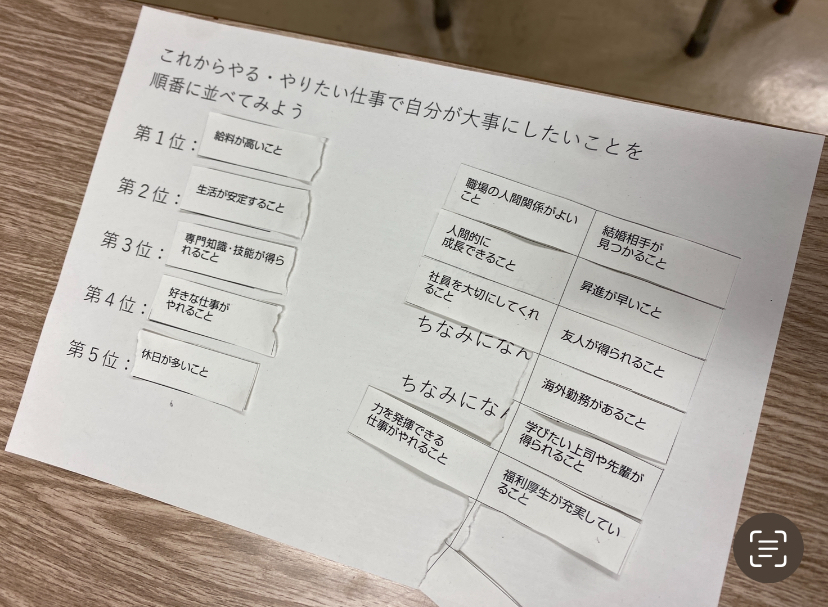 これからやる・やりたい仕事で自分が大事にしたいことを
順番に並べてみよう
第1位：
給料が高いこと
第2位：
生活が安定すること
第3位：
専門知識・技能が得ら
れること
第4位：
好きな仕事が
やれること
第5位：
休日が多いこと
職場の人間関係がよい
こと
結婚相手が
見つかること
人間的に
成長できること
昇進が早いこと
社員を大切にしてくれ
ること
友人が得られること
ちなみになん
海外勤務があること
ちなみにな
力を発揮できる
仕事がやれること
学びたい上司や先輩が
得られること
福利厚生が充実してい
ること